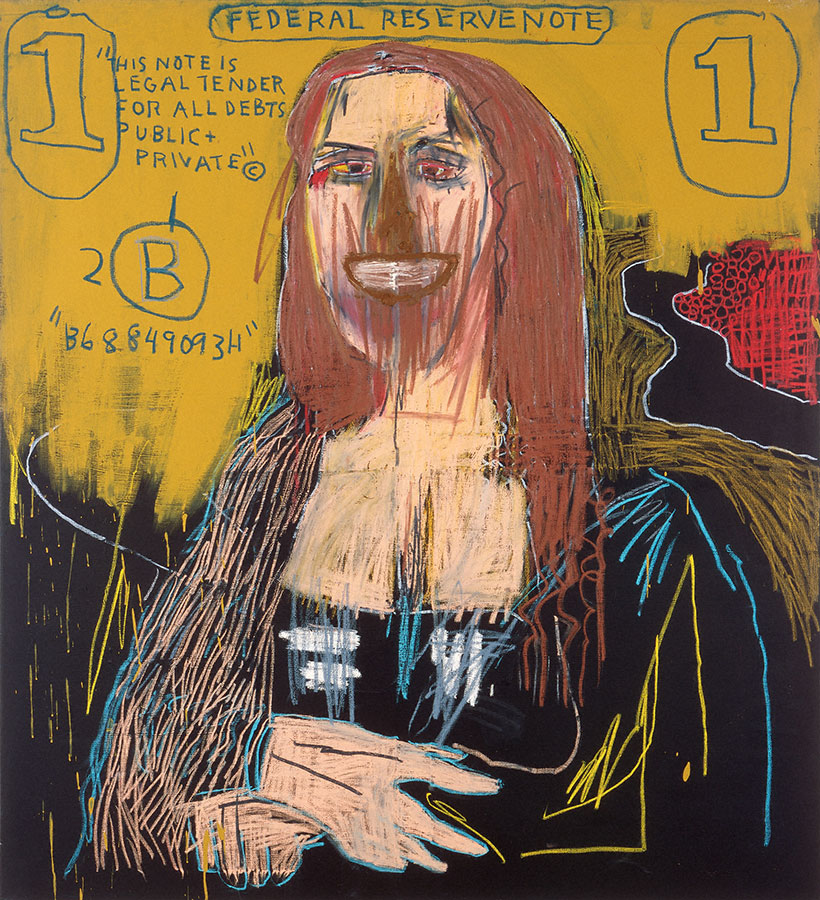 FEDERAL RESERVENOTE
1
"THIS NOTE IS
LEGAL TENDER
FOR ALL DEBTS
PUBLIC +
PRIVATE"©
1
2 B
"B68849093H"